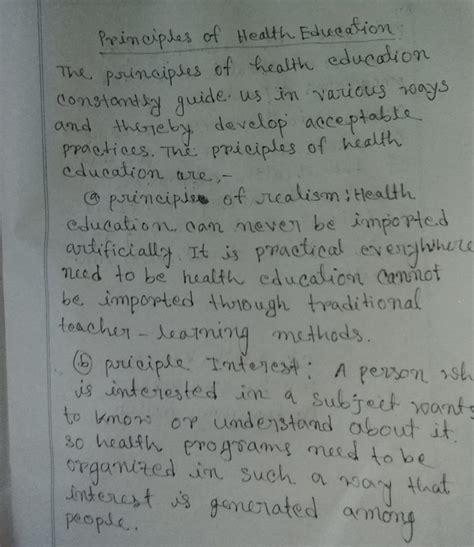 Principles of Health Education
The principles of health education
constantly guide us in various ways
and thereby develop acceptable
practices. The priciples of health
education are,-
(a) principle of realism: Health
education can never be imported
artificially. It is practical everywhere
need to be health education cannot
be imported through traditional
teacher-learning methods.
(b) priciple Interest: A person wh
is interested in a subject wants
to know or understand about it.
so health programs need to be
organized in such a way that
interest is generated among
people.